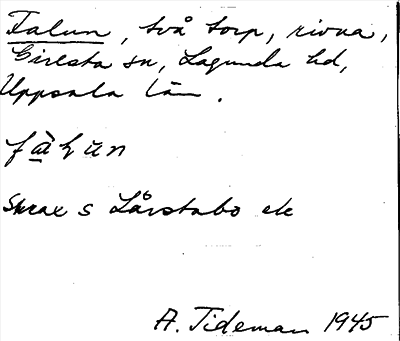 Falun, två torp, rivna,
Giresta sn, Lagunda hd,
Uppsala län.
fàlun
Strax S Lårstabo ek
A. Tideman 1945